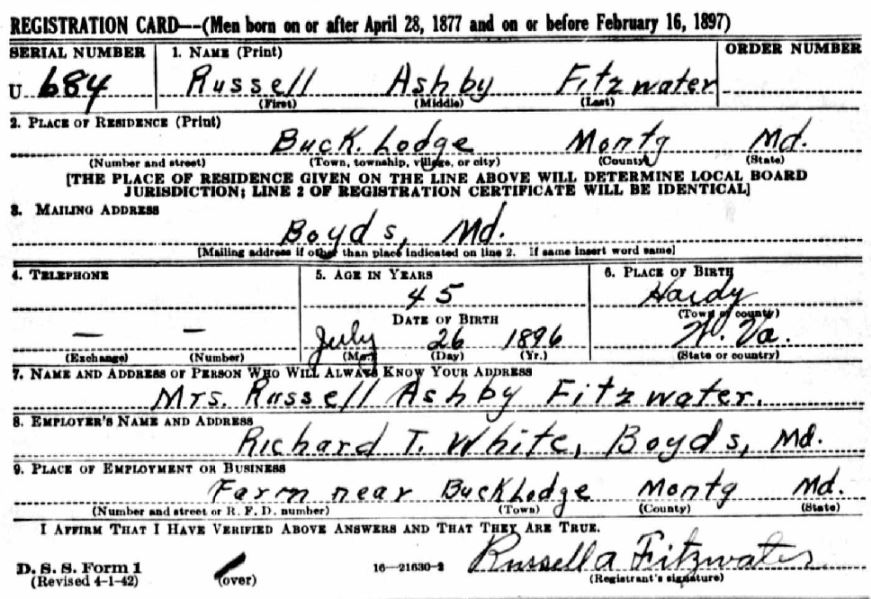 REGISTRATION CARD—(Men born on or after April 28, 1877 and on or before February 16, 1897)
SERIAL NUMBER 1. NAME (Print) ORDER NUMBER
U 684 Russell Ashby Fitzwater
(First) (Middle) (Last)
2. PLACE OF RESIDENCE (Print)
Buck Lodge Montg Md.
(Number and street) (Town, township, village, or city) (County) (State)
[THE PLACE OF RESIDENCE GIVEN ON THE LINE ABOVE WILL DETERMINE LOCAL BOARD
JURISDICTION; LINE 2 OF REGISTRATION CERTIFICATE WILL BE IDENTICAL]
3. MAILING ADDRESS
Boyds, Md.
[Mailing address if other than place indicated on line 2. If same insert word same]
4. TELEPHONE 5. AGE IN YEARS 6. PLACE OF BIRTH
45 Hardy
DATE OF BIRTH (Town or county)
— — July 26 1896 W. Va.
(Exchange) (Number) (Mo.) (Day) (Yr.) (State or country)
7. NAME AND ADDRESS OF PERSON WHO WILL ALWAYS KNOW YOUR ADDRESS
Mrs. Russell Ashby Fitzwater.
8. EMPLOYER'S NAME AND ADDRESS
Richard T. White, Boyds, Md.
9. PLACE OF EMPLOYMENT OR BUSINESS
Farm near Buck Lodge Montg Md.
(Number and street or R. F. D. number) (Town) (County) (State)
I AFFIRM THAT I HAVE VERIFIED ABOVE ANSWERS AND THAT THEY ARE TRUE.
Russell A Fitzwater
D. S. S. Form 1 (over) 16—21630-2 (Registrant's signature)
(Revised 4-1-42)